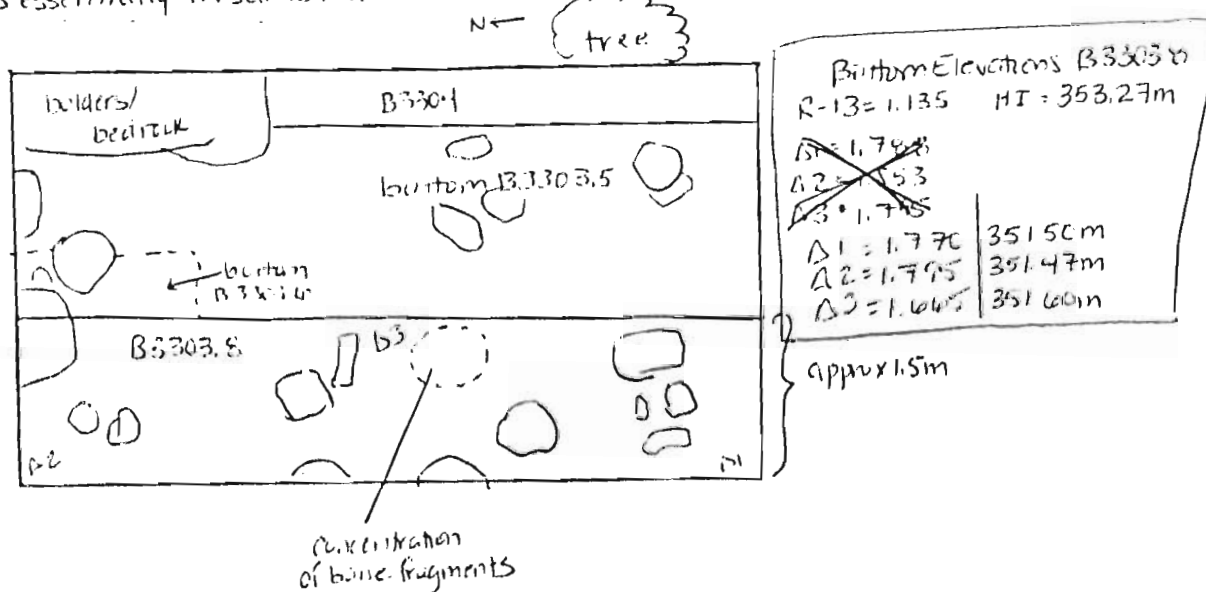 N ←
tree
bolders/
bedrock
B3304
bottom B3303.5
bottom
B3303.8
b3
Δ2
Δ1
approx 1.5m
concentration
of bone fragments
Bottom Elevations B3303.8
R-13 = 1.135 HI = 353.27m
Δ2 = 1.553
Δ1 = 1.770 351.50m
Δ2 = 1.795 351.47m
Δ3 = 1.665 351.60m